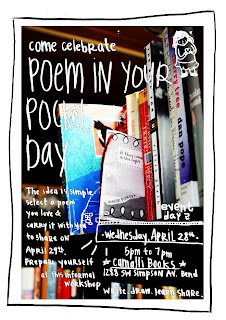 come celebrate
POEM IN YOUR
POCKET
DAY
The idea is simple
select a poem
you love &
carry it with you
to share on
April 29th.
Prepare yourself
at this informal
workshop
event
day 2
Wednesday, April 28th.
5pm to 7pm
Camalli Books
1288 SW SIMPSON AV. Bend
write. draw. learn. share.
dan pope